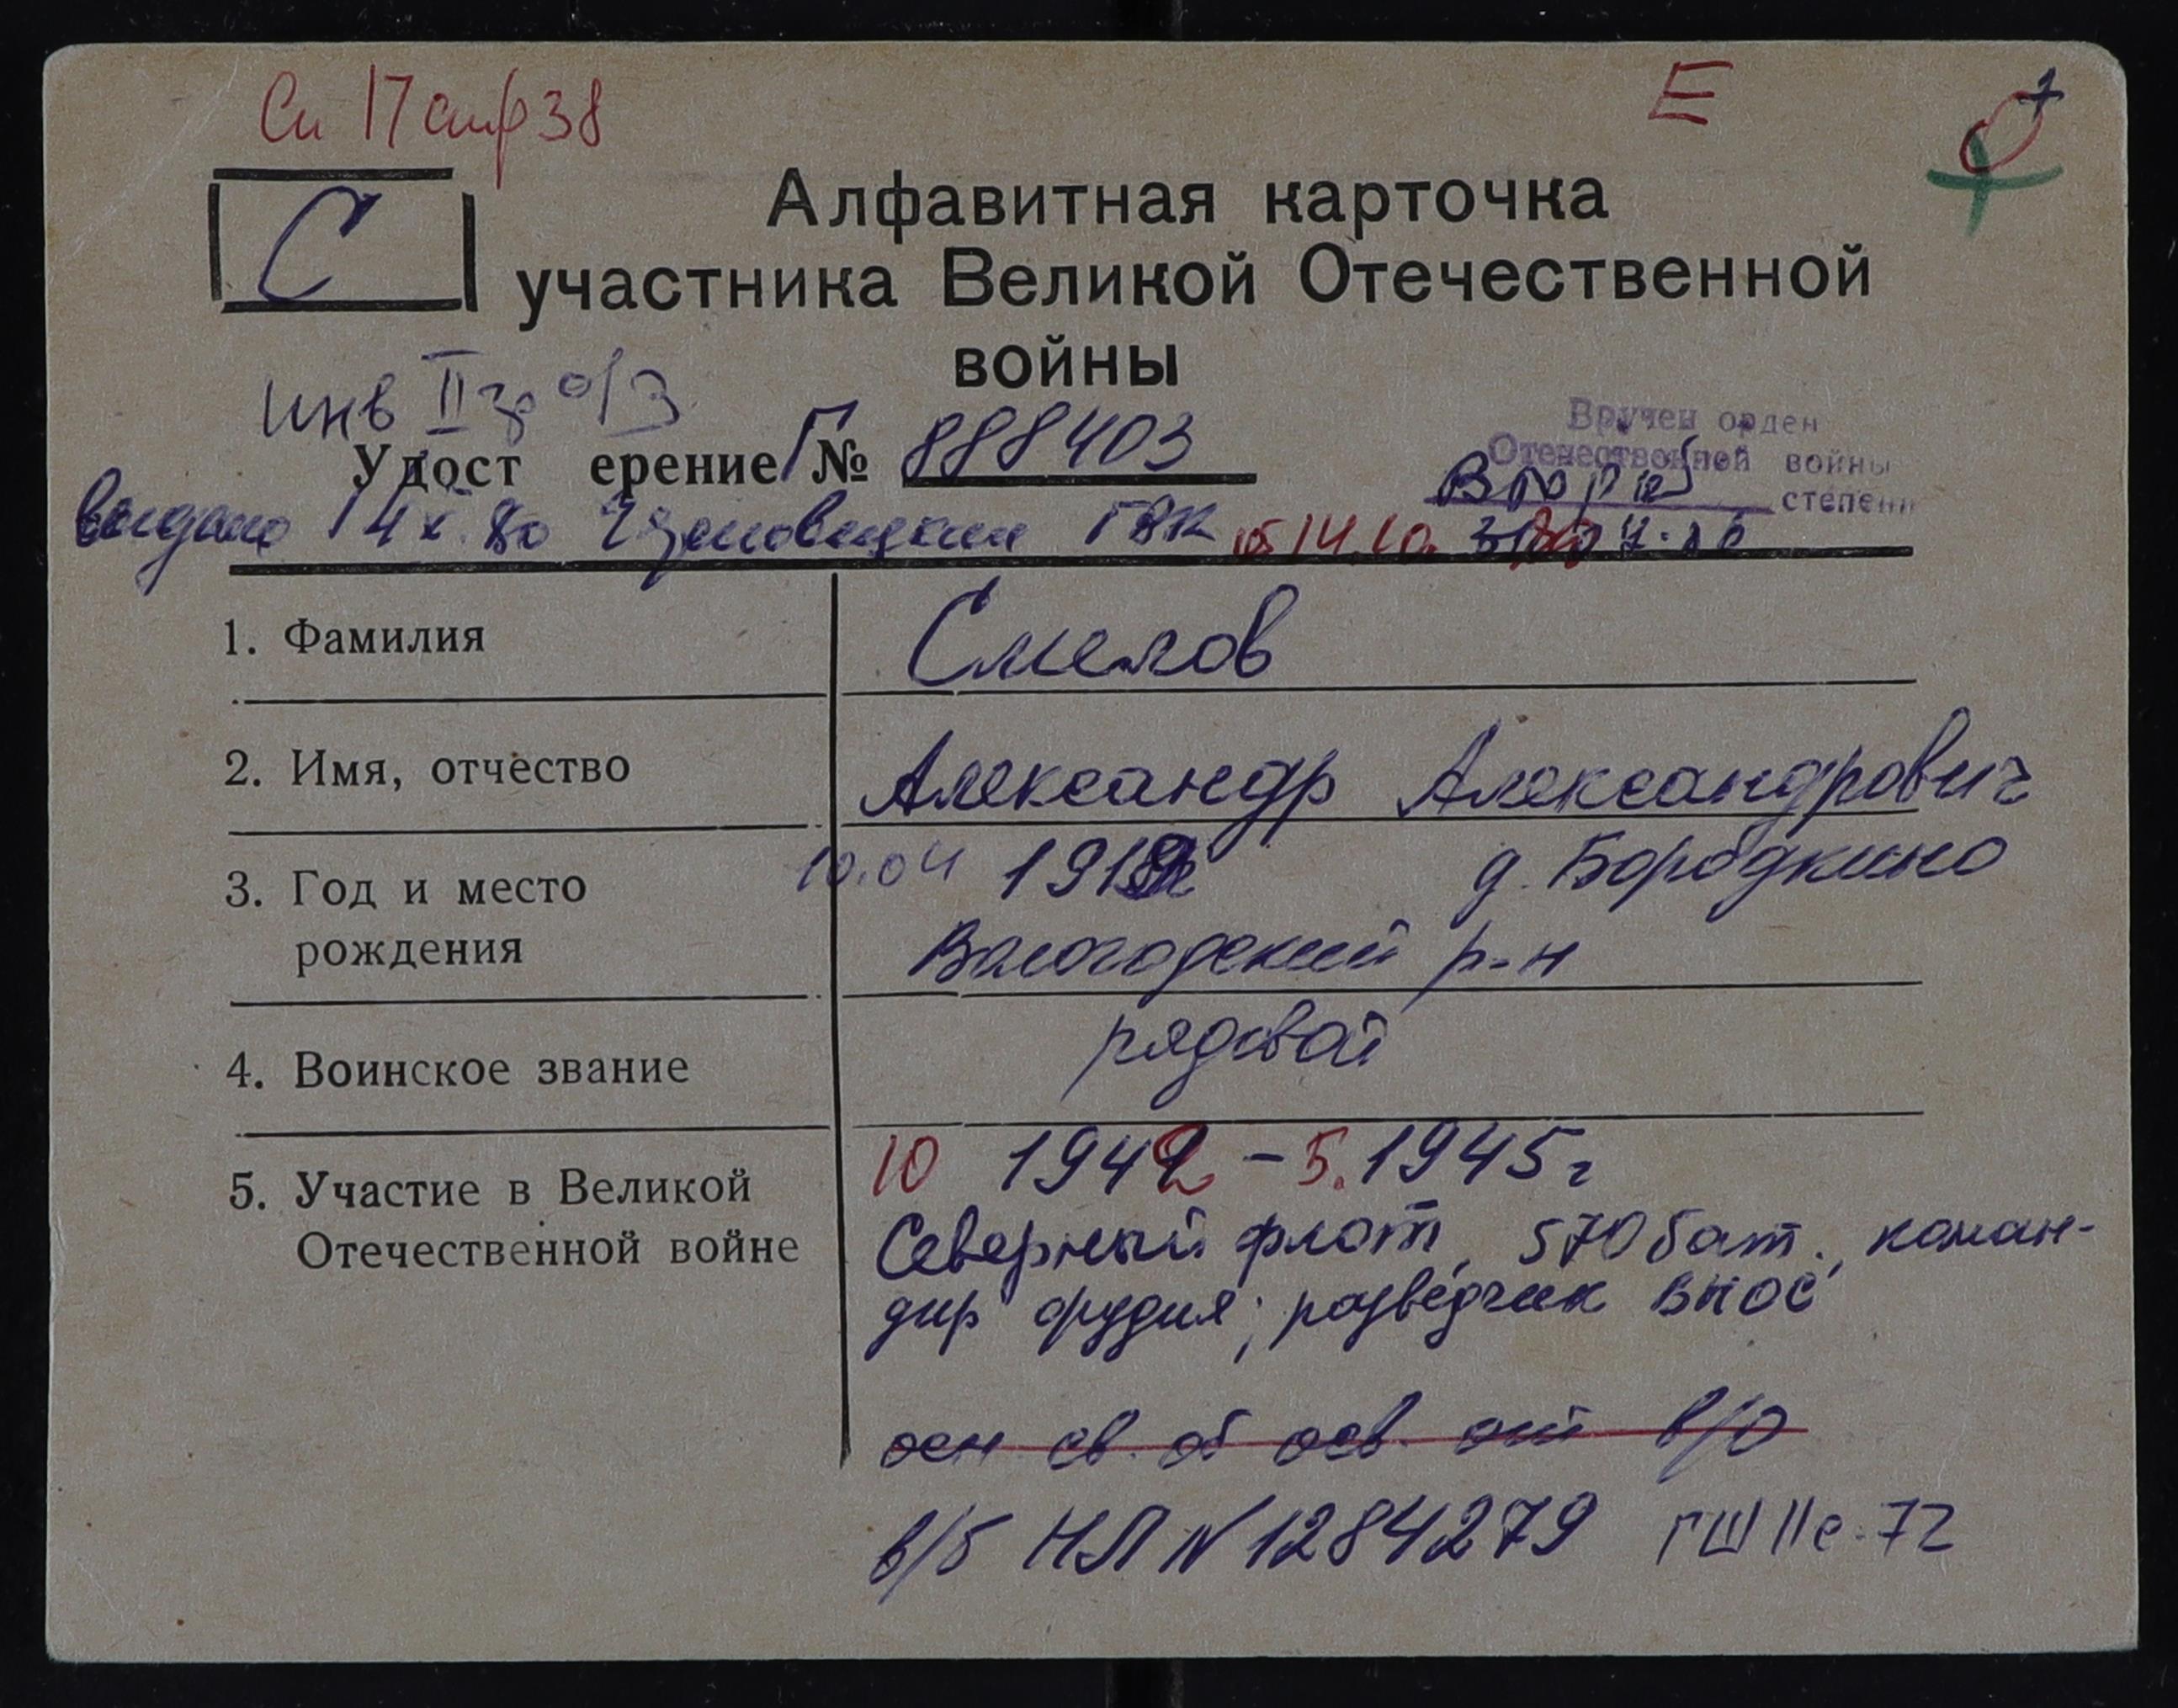 Сп 17 стр 38
Е
С
Алфавитная карточка
участника Великой Отечественной
войны
инв II гр о/з
Вручен орден
Отечественной войны
Второй степени
Удост ерение Г № 888403
выдано 14 X. 80 ГВК от 14.10.80
1. Фамилия Смелов
2. Имя, отчество Александр Александрович
3. Год и место 10.04 д. Бородкино
рождения Вологодский р-н
4. Воинское звание рядовой
5. Участие в Великой 10 1942 – 5. 1945 г
Отечественной войне Северный флот, 570 бат., коман-
дир орудия; разведчик ВНОС
осн св. об осв. от в/о
в/б НЛ N 1284279